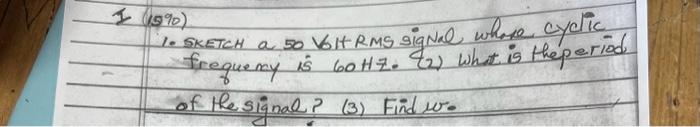 I (15%)
1. SKETCH a 50 Volt RMS signal whose cyclic
frequency is 60 HZ. (2) What is the period
of the signal? (3) Find ω.